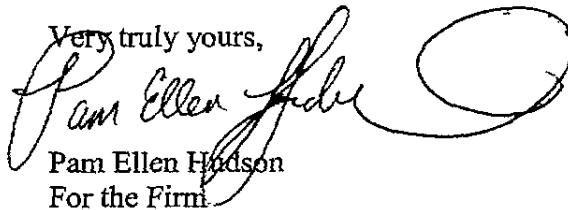 Very truly yours,
Pam Ellen Hudson
Pam Ellen Hudson
For the Firm